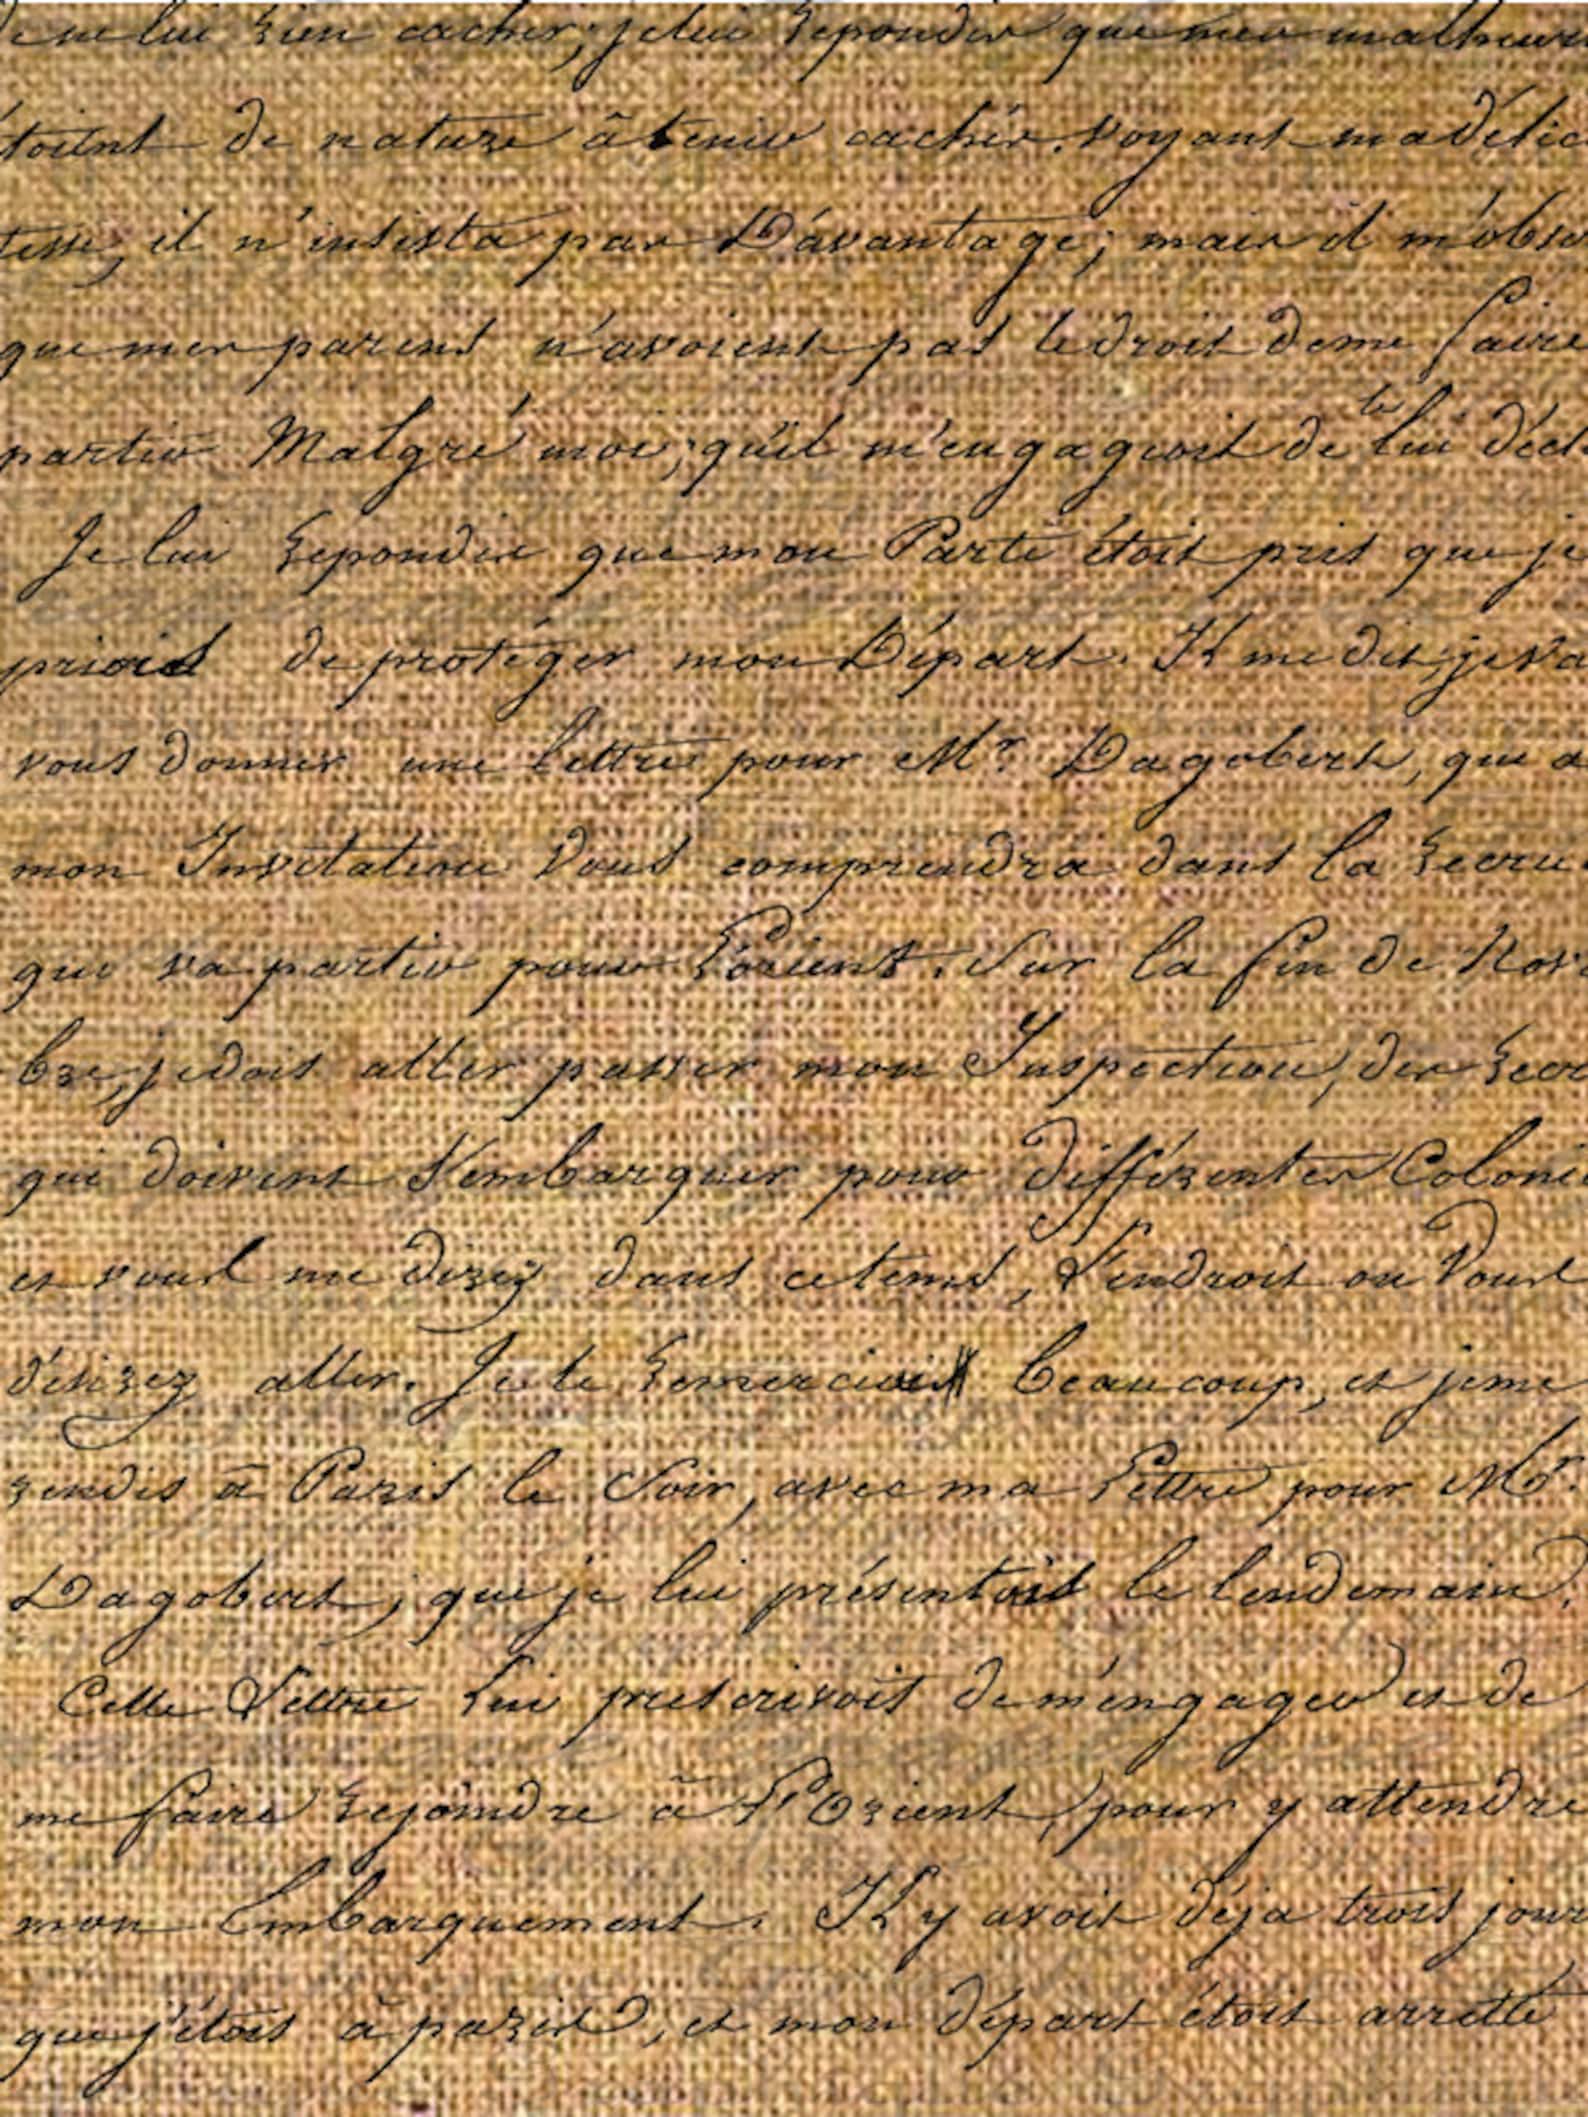 de ne lui rien cacher; je lui repondis que mes malheurs
étoient de nature à tenir cachés. Voyant ma délica
tesse, il n'insista pas Davantage; mais il m'obse
que mes parens n'avoient pas le droit de me faire
partir Malgré moi; qu'il m'engageoit de le lui décl
Je lui repondis que mon Parti étoit pris que je
priois de protéger mon Départ. Il me dit; je va
vous donner une lettre pour Mr. Dagobert, qui a
mon Invitation Vous comprendra dans la recru
qui va partir pour l'orient. Sur la fin de Nove
bre, je dois aller passer mon Inspection, des recr
qui doivent s'embarquer pour différentes Coloni
et vous me direz dans ce tems, l'endroit ou Vous
désirez aller. Je le remerciois beaucoup, et je me
rendis à Paris le Soir, avec ma Lettre pour Mr.
Dagobert, que je lui présentois le lendemain.
Cette Lettre Lui prescrivoit de m'engager et de
me faire rejoindre à l'Orient, pour y attendre
mon Embarquement. Il y avoit déja trois jour
que j'étois à paris, et mon départ étoit arretté